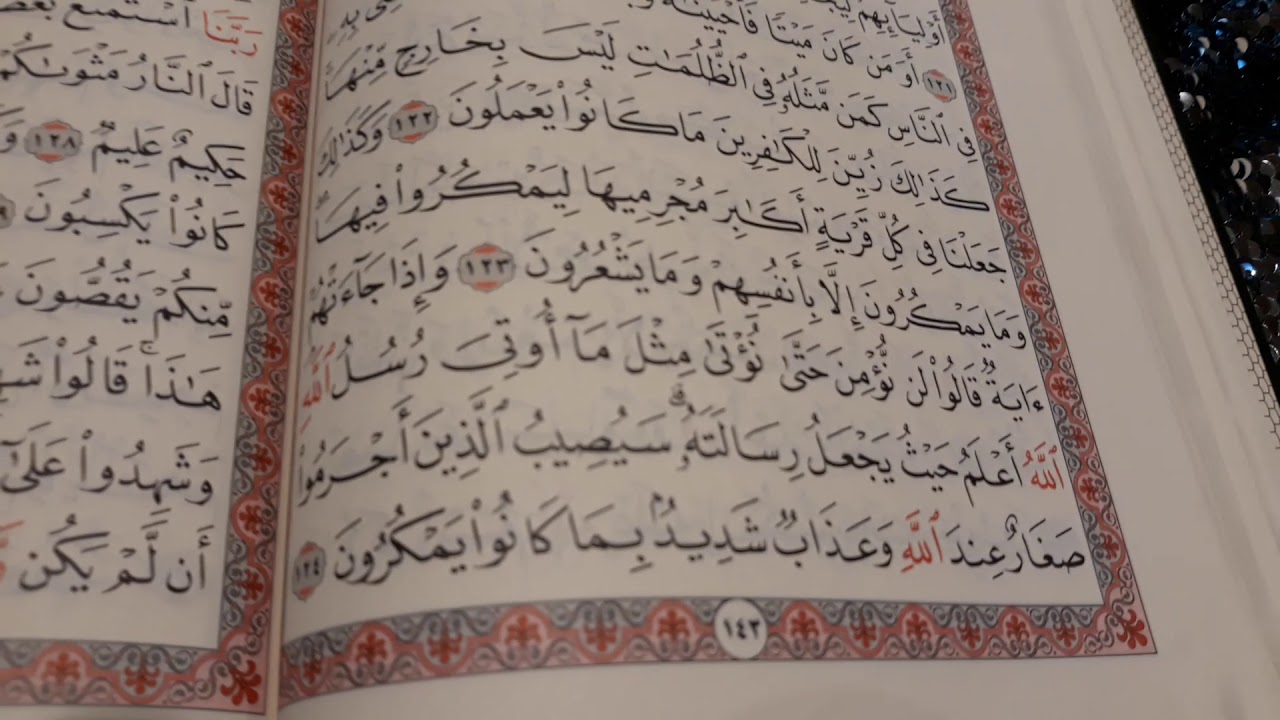 أَوْلِيَآئِهِمْ
١٢١ أَوَمَن كَانَ مَيْتًا فَأَحْيَيْنَٰهُ
فِى ٱلنَّاسِ كَمَن مَّثَلُهُۥ فِى ٱلظُّلُمَٰتِ لَيْسَ بِخَارِجٍ مِّنْهَا
كَذَٰلِكَ زُيِّنَ لِلْكَٰفِرِينَ مَا كَانُوا۟ يَعْمَلُونَ ١٢٢ وَكَذَٰلِكَ
جَعَلْنَا فِى كُلِّ قَرْيَةٍ أَكَٰبِرَ مُجْرِمِيهَا لِيَمْكُرُوا۟ فِيهَا
وَمَا يَمْكُرُونَ إِلَّا بِأَنفُسِهِمْ وَمَا يَشْعُرُونَ ١٢٣ وَإِذَا جَآءَتْهُمْ
ءَايَةٌ قَالُوا۟ لَن نُّؤْمِنَ حَتَّىٰ نُؤْتَىٰ مِثْلَ مَآ أُوتِىَ رُسُلُ ٱللَّهِ
ٱللَّهُ أَعْلَمُ حَيْثُ يَجْعَلُ رِسَالَتَهُۥ سَيُصِيبُ ٱلَّذِينَ أَجْرَمُوا۟
صَغَارٌ عِندَ ٱللَّهِ وَعَذَابٌ شَدِيدٌۢ بِمَا كَانُوا۟ يَمْكُرُونَ ١٢٤
١٤٣
رَبَّنَا ٱسْتَمْتَعَ
قَالَ ٱلنَّارُ مَثْوَىٰكُمْ
حَكِيمٌ عَلِيمٌ ١٢٨
كَانُوا۟ يَكْسِبُونَ
مِّنكُمْ يَقُصُّونَ
هَٰذَا قَالُوا۟
وَشَهِدُوا۟ عَلَىٰٓ
أَن لَّمْ يَكُن